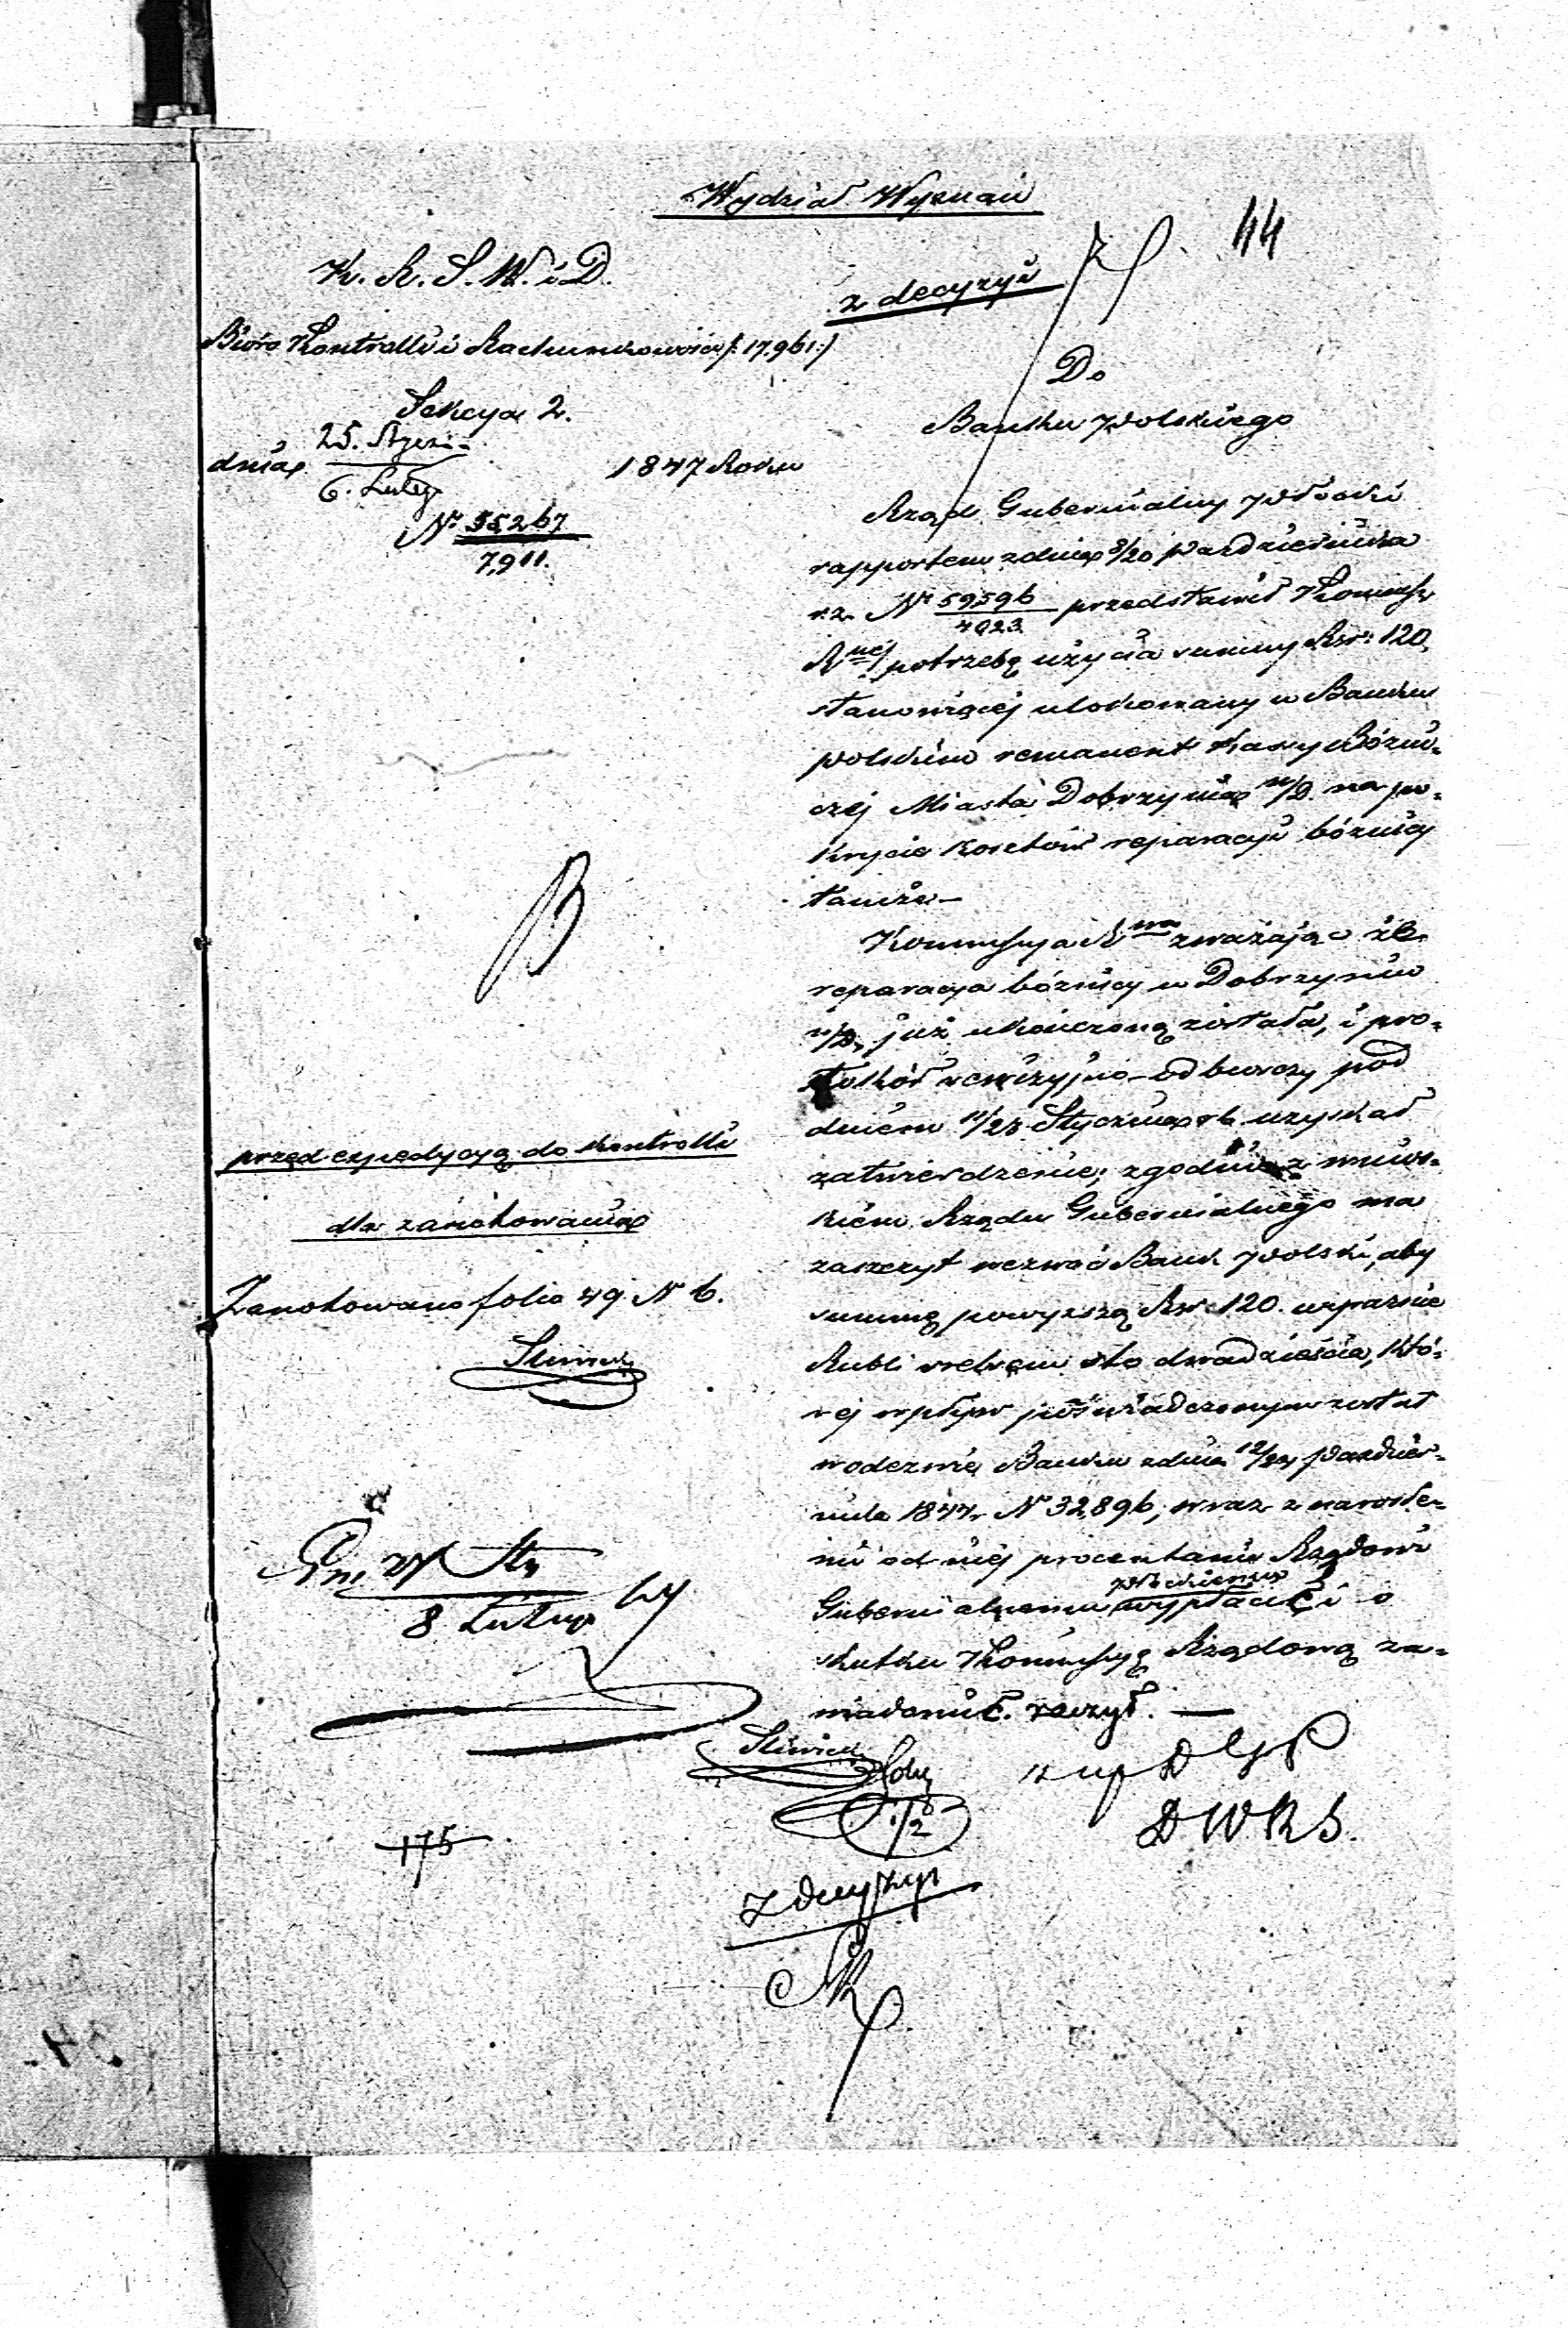 Wydział Wyznań
44
K. R. S. W. i D.
z decyzyi
Biuro Kontrolli i Rachunkowości /: 17,961 :/
Do
Sekcya 2.
Banku Polskiego
25. Styczn.
dnia 1847 Roku
6. Lutego
Nr 55267
7,911.
Rząd Gubernialny Płocki
rapportem z dnia 8/20 Października
r.z. Nr 59596 przedstawił Kommissyi
4023
R nej potrzebę użycia summy Rsr: 120.
stanowiącej ulokowany w Banku
Polskim remanent Kassy Bóżni-
czej Miasta Dobrzynia n/D. na po-
krycie kosztów reparacyi bóżnicy
tamże —
Kommissya R wa zważając że
reparacya bóżnicy w Dobrzyniu
n/D. już ukończoną została, i pro-
tokół rewizyjno-odbiorczy pod
dniem 11/23 Stycznia rb uzyskał
zatwierdzenie; zgodnie z wnios-
kiem Rządu Gubernialnego ma
zaszczyt wezwać Bank Polski, aby
summę powyższą Rsr: 120. wyraźnie
Rubli srebrem sto dwadzieścia, któ-
rej wpływ poświadczonym został
w odezwie Banku z dnia 12/24 Paździer-
nika 1844r N 32,896, wraz z narosłe-
mi od niej procentami Rządowi
Płockiemu
Gubernialnemu wypłacić i o
skutku Kommissyą Rządową za-
wiadomić raczył. —
przed expedycyą do Kontrolli
dla zanotowania
Zanotowano folio 49 N 6.
Śliwicki
8 Lutego
Śliwicki
D W. R S.
175
Z decyzyi